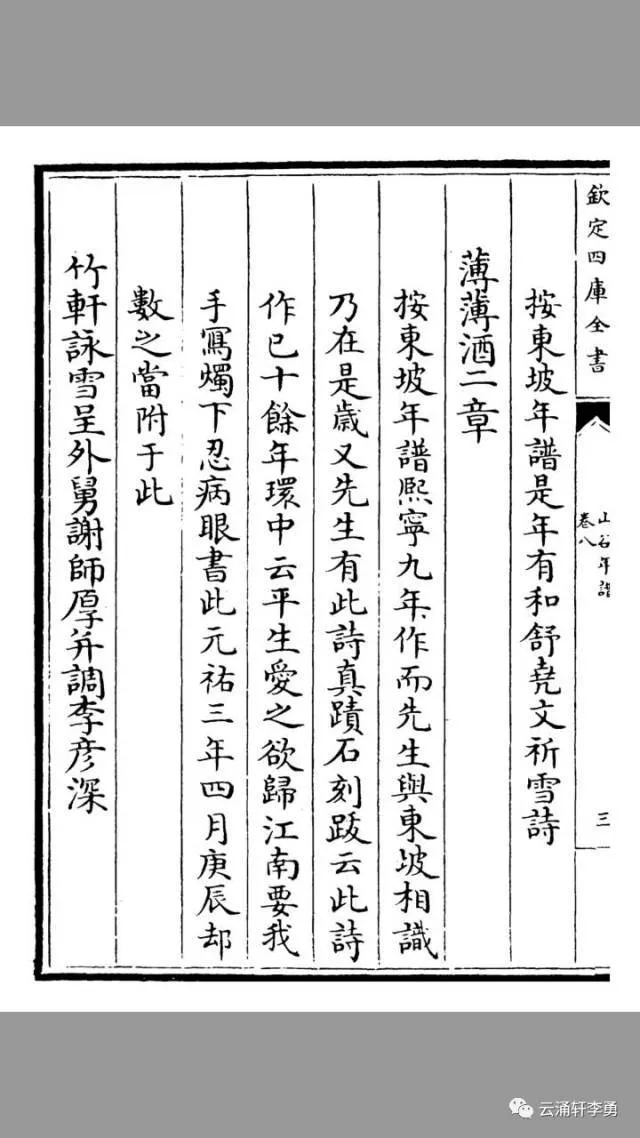 欽定四庫全書
山谷年譜
卷八
三
按東坡年譜是年有和舒堯文祈雪詩
薄薄酒二章
按東坡年譜熙寧九年作而先生與東坡相識
乃在是歲又先生有此詩真蹟石刻跋云此詩
作已十餘年環中云平生愛之欲歸江南要我
手寫燭下忍病眼書此元祐三年四月庚辰却
數之當附于此
竹軒詠雪呈外舅謝師厚并調李彦深
云涌轩李勇